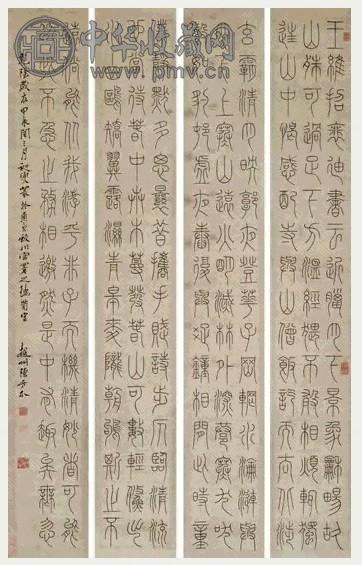 王維招裴迪書云近臘月下景氣和暢故
山殊可過足下方溫經猥不敢相煩輒便
往山中憩感配寺與山僧飯訖而去北涉
玄灞清月映郭夜登華子岡輞水淪漣與
月上下寒山遠火明滅林外深巷寒犬吠
聲如豹村墟夜舂復與疏鐘相間此時童
僕靜默多思曩昔攜手賦詩步仄逕臨清流
也當待春中卉木蔓發春山可望輕鯈出
水白鷗矯翼露濕青皋麥隴朝雊斯之不
遠倘能從我游乎非子天機清妙者豈能
以此不急之務相邀然是中有深趣矣無忽
乾隆歲在甲辰閏三月
中华收藏网
www.pmv.cn